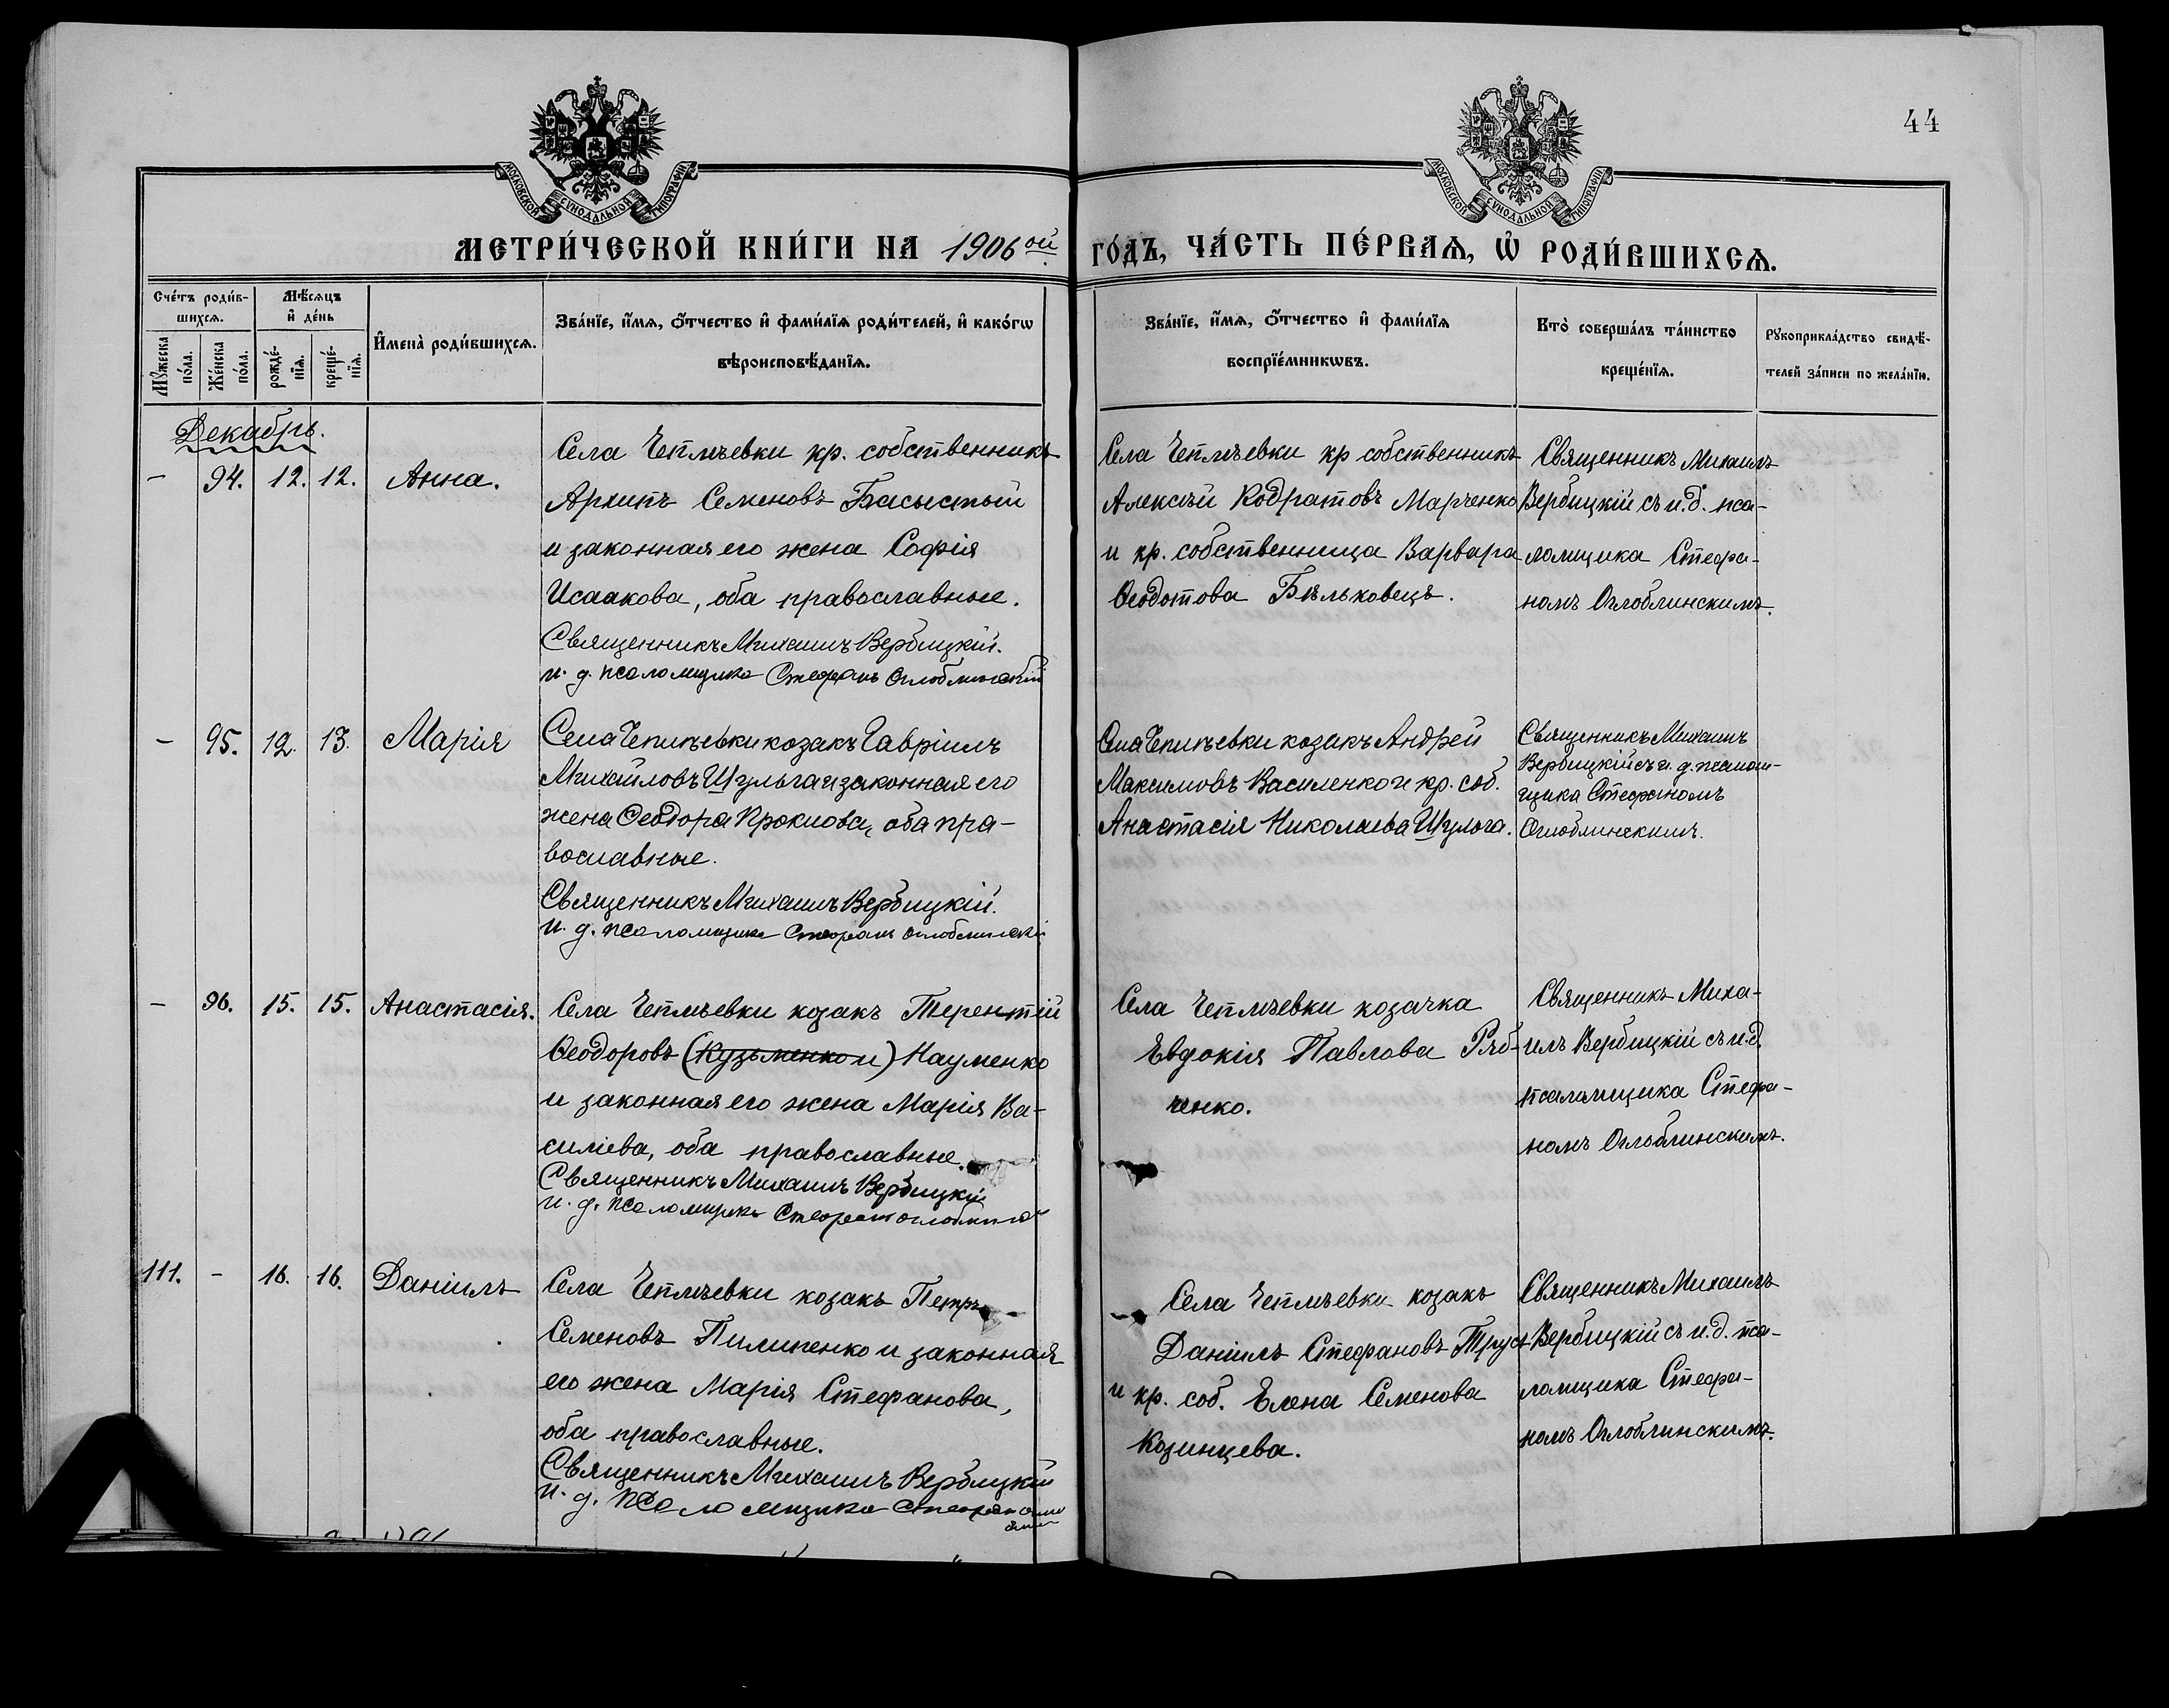 44
МОСКОВСКОЙ СѴНОДАЛЬНОЙ ТИПОГРАФІИ
МОСКОВСКОЙ СѴНОДАЛЬНОЙ ТИПОГРАФІИ
МЕТРИ́ЧЕСКОЙ КНИ́ГИ НА 1906ой ГО́ДЪ, ЧА́СТЬ ПЕ́РВАѦ, Ѡ҆ РОДИ́ВШИХСѦ.
Сче́тъ роди́в-
шихсѧ.
Мꙋ́жеска по́ла.
Же́нска по́ла.
Мѣ́сѧцъ
и҆ де́нь
рожде́-
нїѧ.
креще́-
нїѧ.
И҆мена̀ роди́вшихсѧ.
Зва́нїе, и҆́мѧ, ѻ҆́тчество и҆ фами́лїѧ роди́телей, и҆ како́гѡ
вѣроисповѣ́данїѧ.
Зва́нїе, и҆́мѧ, ѻ҆́тчество и҆ фами́лїѧ
воспрїе́мникѡвъ.
Кто̀ соверша́лъ та́инство
креще́нїѧ.
Рꙋкоприкла́дство свидѣ́-
телей за́писи по жела́нїю.
Декабрь.
– 94. 12. 12. Анна.
Села Чепліевки кр. собственникъ
Архипъ Семеновъ Басыстый
и законная его жена Софія
Исаакова, оба православные.
Священникъ Михаилъ Вербицкій.
и. д. псаломщика Стефанъ Оглоблинскій
Села Чепліевки кр собственникъ
Алексѣй Кодратовъ Марченко
и кр. собственница Варвара
Ѳеодотова Бѣльковецъ.
Священникъ Михаилъ
Вербицкій съ и. д. пса-
ломщика Стефа-
номъ Оглоблинскимъ.
– 95. 12. 13. Марія
Села Чепліевки козакъ Гавріилъ
Михайловъ Шульга и законная его
жена Ѳеодора Прокпова, оба пра-
вославные.
Священникъ Михаилъ Вербицкій.
и. д. псаломщика Стефанъ Оглоблинскій
Села Чепліевки козакъ Андрей
Максимовъ Василенко и кр. соб.
Анастасія Николаева Шульга.
Священникъ Михаилъ
Вербицкій съ и. д. псалом-
щика Стефаномъ
Оглоблинскимъ.
– 96. 15. 15. Анастасія.
Села Чепліевки козакъ Терентій
Ѳеодоровъ (Кузьменко и) Науменко
и законная его жена Марія Ва-
силіева, оба православные.
Священникъ Михаилъ Вербицкій
и. д. псаломщика Стефанъ Оглоблинскій
Села Чепліевки козачка
Евдокія Павлова Ряб-
ченко.
Священникъ Миха-
илъ Вербицкій съ и. д.
псаломщика Стефа-
номъ Оглоблинскимъ.
111. – 16. 16. Даніилъ
Села Чепліевки козакъ Петръ
Семеновъ Пилипенко и законная
его жена Марія Стефанова,
оба православные.
Священникъ Михаилъ Вербицкій
и. д. псаломщика Стефанъ
Села Чепліевки козакъ
Даніилъ Стефановъ Трусъ
и кр. соб. Елена Семенова
Козинцева.
Священникъ Михаилъ
Вербицкій съ и. д. пса-
ломщика Стефа-
номъ Оглоблинскимъ.